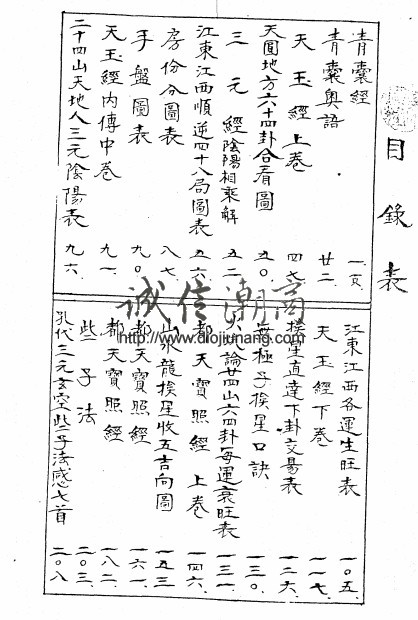 目錄表
青囊經 一頁
青囊奧語 廿二
天玉經上卷 四七
天圓地方六十四卦合看圖 五〇
三元經陰陽相乘解 五二
江東江西順逆四十八局圖表 五六
房份分圖表 八七
手盤圖表 九〇
天玉經內傳中卷 九一
二十四山天地人三元陰陽表 九六
江東江西各運生旺表 一〇五
天玉經下卷 一一七
挨星直達下卦交易表 一二六
無極子挨星口訣 一三〇
論廿四山六四卦每運衰旺表 一三一
都天寶照經上卷 一四六
山水龍挨星收五吉向圖 一五三
都天寶照經 一六一
都天寶照經 一八二
些子法 二〇三
孔代三元玄空些子法感七首 二〇八
誠信潮商
http://www.diojiunang.com